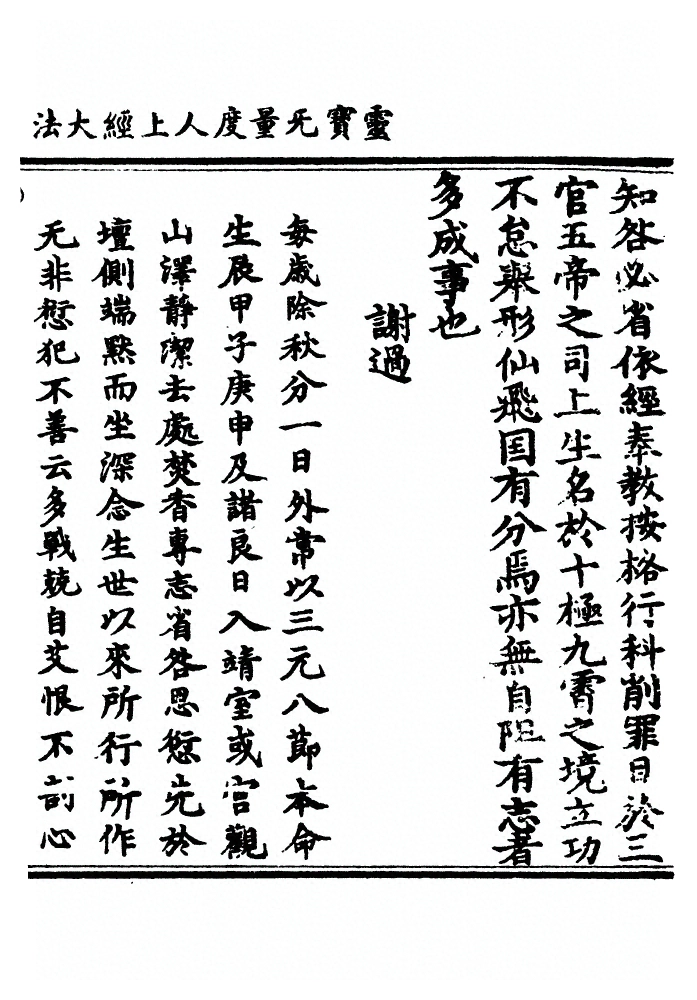 靈寶无量度人上經大法
知咎必省依經奉教按格行科削罪目於三
官五帝之司上生名於十極九霄之境立功
不怠舉形仙飛囯有分焉亦無自阻有志者
多成事也
謝過
每歲除秋分一日外常以三元八節本命
生辰甲子庚申及諸良日入靖室或宫觀
山澤静潔去處焚香專志省咎思愆先於
壇側端黙而坐深念生世以來所行所作
无非愆犯不善云多戰兢自艾恨不剖心